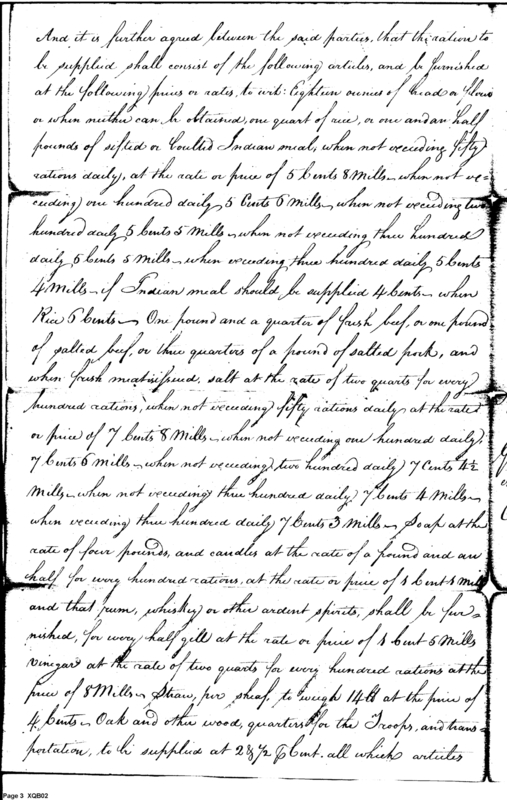 And it is further agreed between the said parties, that the ration to
be supplied shall consist of the following articles, and be furnished
at the following prices or rates, to wit: Eighteen ounces of bread or flour
or when neither can be obtained, one quart of rice, or one and an half
pounds of sifted or boulted Indian meal, when not exceeding fifty
rations daily, at the rate or price of 5 Cents 8 Mills – when not ex=
ceeding one hundred daily 5 Cents 6 Mills – when not exceeding two
hundred daily 5 Cents 5 Mills – when not exceeding three hundred
daily 5 Cents 5 Mills – when exceeding three hundred daily 5 Cents
4 Mills – if Indian meal should be supplied 4 Cents – when
Rice 6 Cents – One pound and a quarter of fresh beef, or one pound
of salted beef, or three quarters of a pound of salted pork, and
when fresh meat is issued, salt at the rate of two quarts for every
hundred rations, when not exceeding fifty rations daily at the rate
or price of 7 Cents 8 Mills – when not exceeding one hundred daily,
7 Cents 6 Mills – when not exceeding two hundred daily 7 Cents 4½
Mills – when not exceeding three hundred daily 7 Cents 4 Mills –
when exceeding three hundred daily 7 Cents 3 Mills – Soap at the
rate of four pounds, and candles at the rate of a pound and an
half for every hundred rations, at the rate or price of 1 Cent Mill
and that rum, whiskey or other ardent spirits, shall be fur=
nished, for every half gill at the rate or price of 1 Cent 5 Mills
Vinegar at the rate of two quarts for every hundred rations at the
price of 8 Mills – Straw, per sheaf, to weigh 14 lb at the price of
4 Cents – Oak and other wood, quarters for the Troops, and trans=
portation, to be supplied at 2 & ½ P Cent. all which articles
Page 3 XQB02